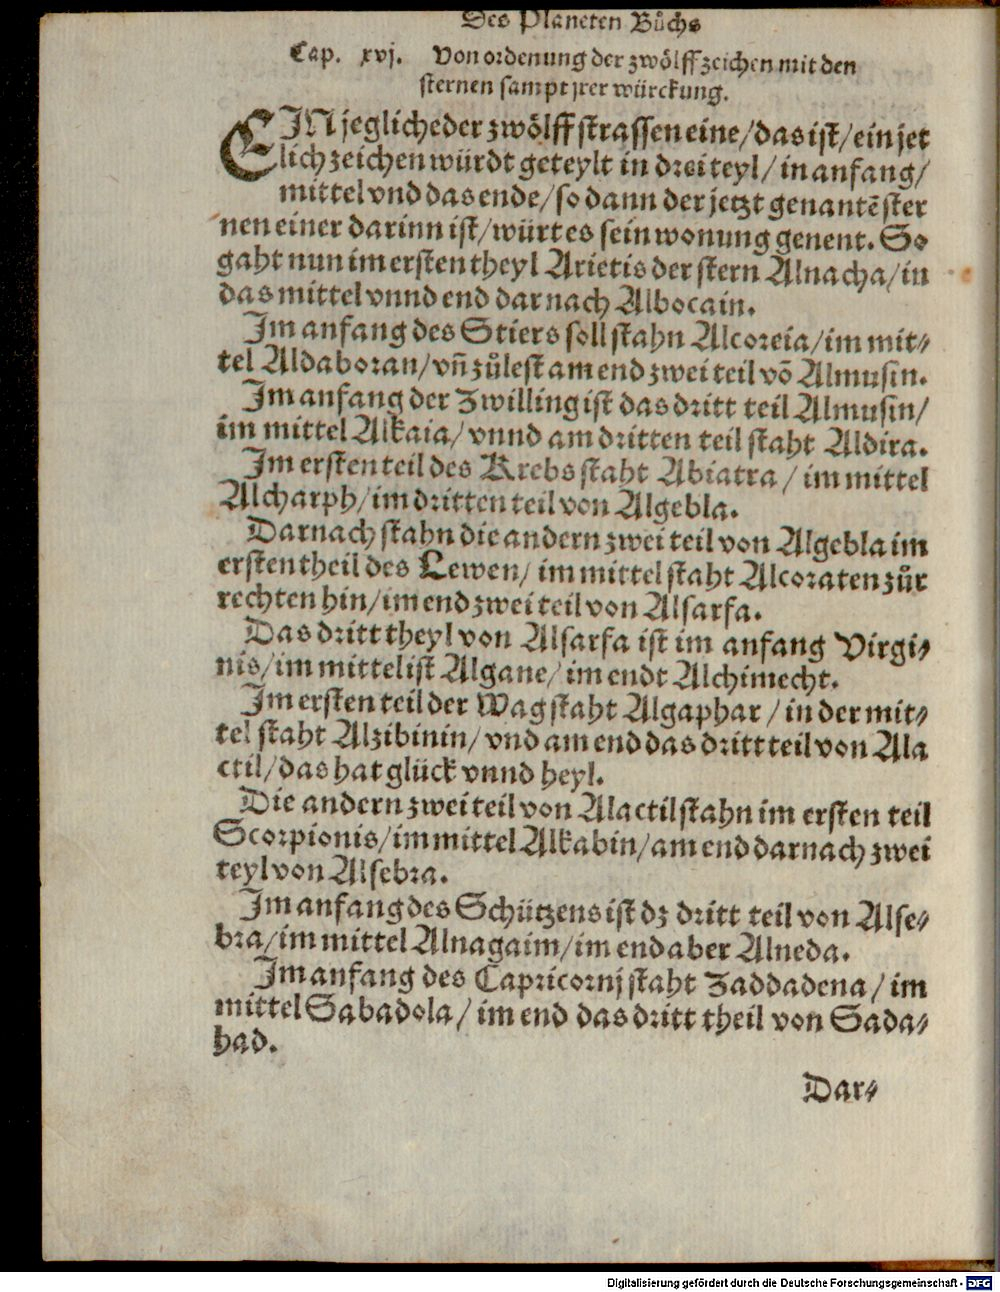 Des Planeten Bůchs
Cap. xvj. Von ordenung der zwölff zeichen mit den
sternen sampt jrer würckung.
EIN jegliche der zwölff strassen eine/das ist/ein jet
lich zeichen würdt geteylt in drei teyl/in anfang/
mittel vnd das ende/so dann der jetzt genantē ster
nen einer darinn ist/würt es sein wonung genent. So
gaht nun im ersten theyl Arietis der stern Alnacha/in
das mittel vnnd end darnach Albocain.
Im anfang des Stiers soll stahn Alcoreia/im mit⸗
tel Aldaboran/vñ zůlest am end zwei teil vō Almusin.
Im anfang der Zwilling ist das dritt teil Almusin/
im mittel Alkaia/vnnd am dritten teil staht Aldira.
Im ersten teil des Krebs staht Abiatra/im mittel
Alcharph/im dritten teil von Algebla.
Darnach stahn die andern zwei teil von Algebla im
ersten theil des Lewen/im mittel staht Alcoraten zůr
rechten hin/im end zwei teil von Alsarfa.
Das dritt theyl von Alsarfa ist im anfang Virgi⸗
nis/im mittel ist Algane/im endt Alchimecht.
Im ersten teil der Wag staht Algaphar/in der mit⸗
tel staht Alzibinin/vnd am end das dritt teil von Ala
ctil/das hat glück vnnd heyl.
Die andern zwei teil von Alactil stahn im ersten teil
Scorpionis/im mittel Alkabin/am end darnach zwei
teyl von Alsebra.
Im anfang des Schützens ist dz dritt teil von Alse⸗
bra/im mittel Alnagaim/im end aber Alneda.
Im anfang des Capricornj staht Zaddadena/im
mittel Sabadola/im end das dritt theil von Sada⸗
had.
Dar⸗
Digitalisierung gefördert durch die Deutsche Forschungsgemeinschaft - DFG